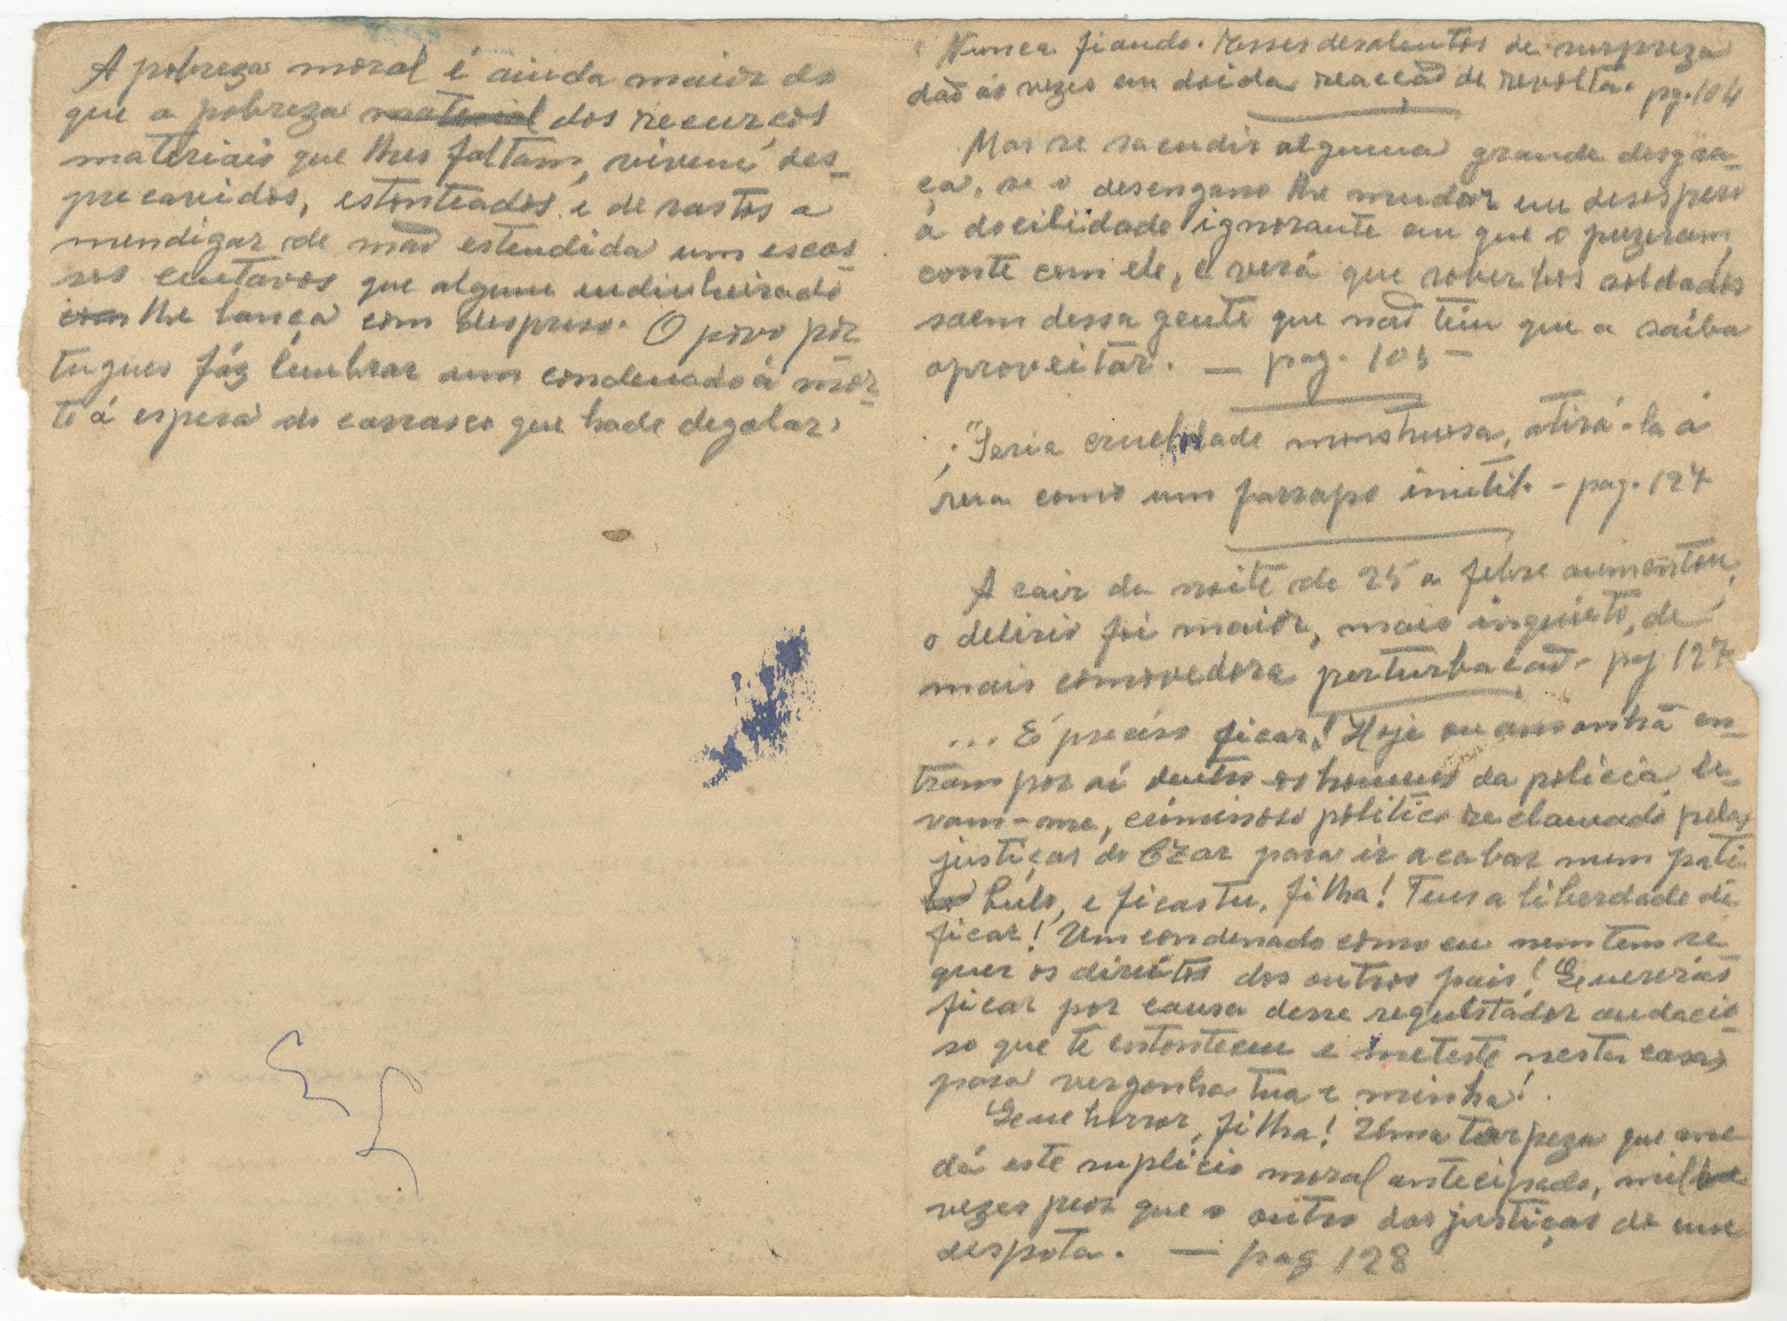 A pobreza moral é ainda maior do
que a pobreza material dos recurços
materiais que lhes faltam, vivem, des-
precavidos, estonteados e de rastos a
mendigar de mão estendida um escas-
sos centavos que algum endinheirado
lhe lança com despreso. O povo por-
tugues fáz lembrar um condenado á mor-
te á espera do carrasco que hade degolar,
Nunca fiando. Esses desalentos de surpreza
dão ás vezes em doida reacção de revolta. pg. 104
Mas se sacudir alguma grande desgra-
ça, se o desengano lhe mudar em desespero
a docilidade ignorante em que o puzeram,
conte com ele, e verá que soberbos soldados
saem dessa gente que não têm que a saiba
aproveitar. — pag. 105 —
"Seria crueldade monstruosa, atirá-la á
rua como um farrapo inutil. - pag. 127
A cair da noite de 25 a febre aumentou,
o delirio foi maior, mais inquieto, de
mais comovedora perturbação - pag 127
... É preciso ficar! Hoje ou amanhã en-
tram por aí dentro os homens da policia, le-
vam-me, criminoso politico reclamado pelas
justiças do Czar para ir acabar num patí-
bulo, e ficas tu, filha! Tens a liberdade de
ficar! Um condenado como eu nem tem se
quer os direitos dos outros pais! Quererias
ficar por causa desse requestador audacio-
so que te entonteceu e meteste nesta casa,
para vergonha tua e minha!
Que horror, filha! Uma torpeza que me
dá este suplicio moral antecipado, mil
vezes peor que o outro das justiças de um
despota. — pag 128